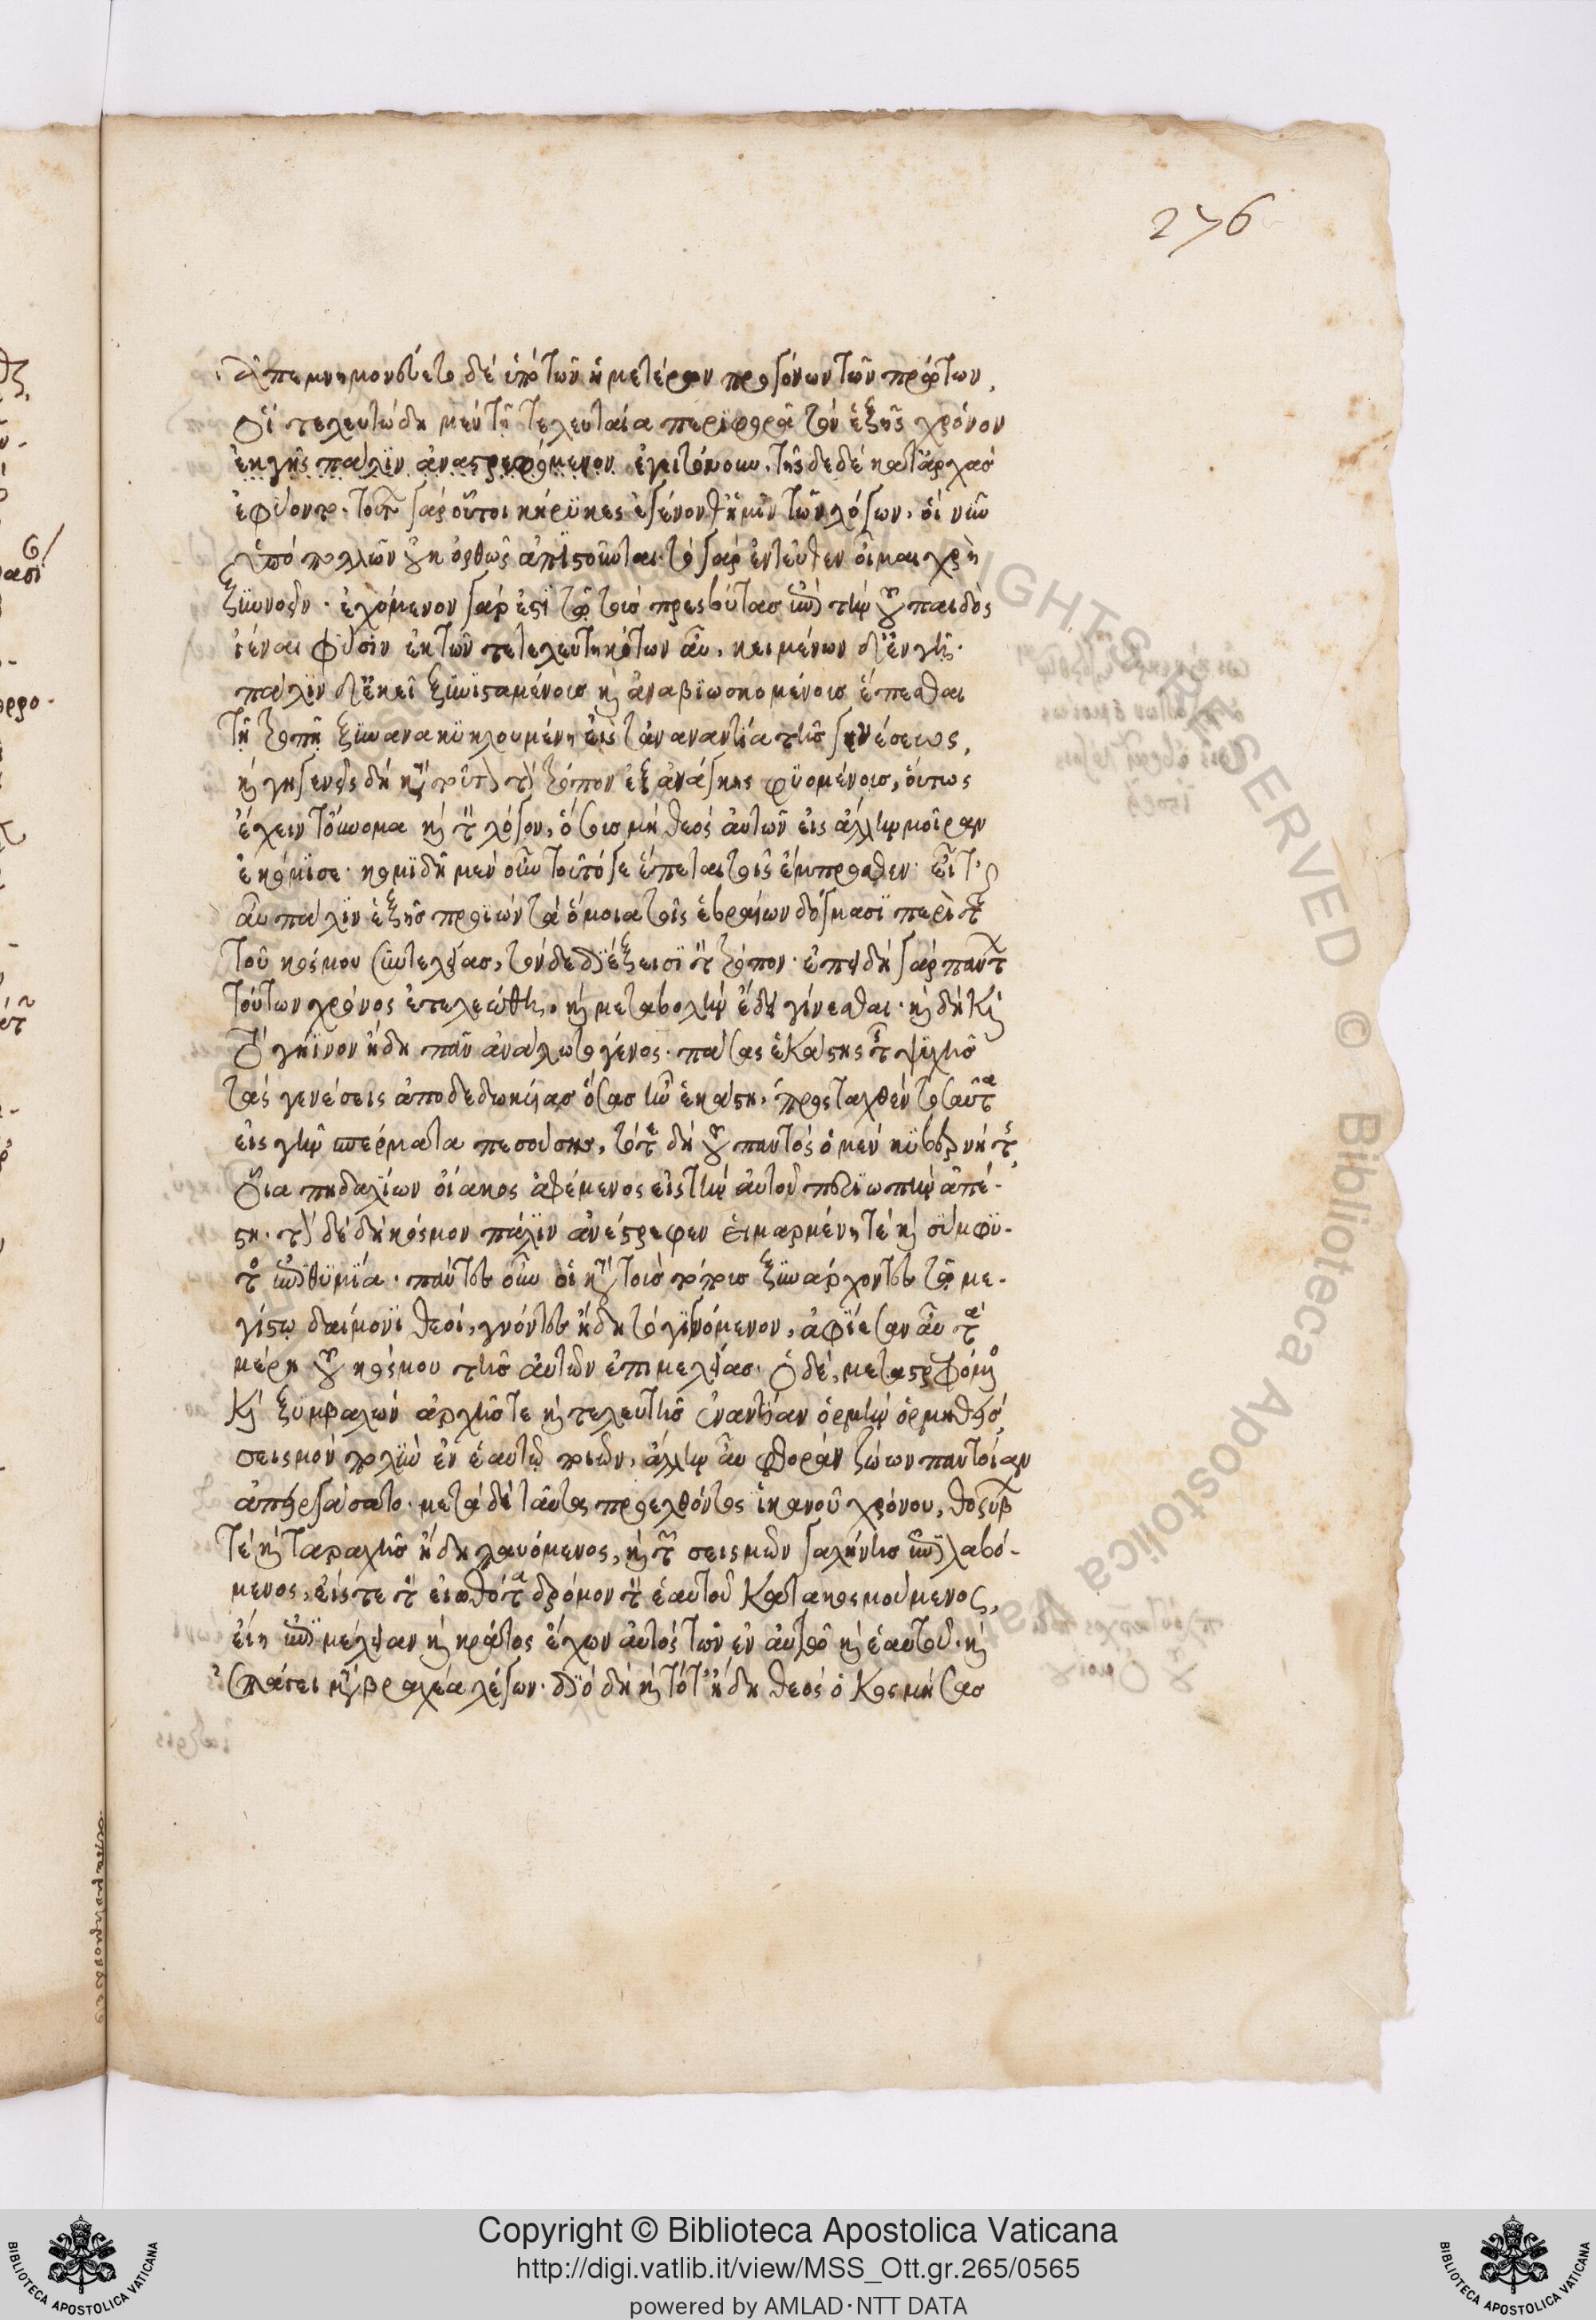 276
ἀπεμνημονεύετο δὲ ὑπὸ τῶν ἡμετέρων προγόνων τῶν πρώτων,
οἳ τελευτώσῃ μὲν τῇ τελευταία περιφορᾷ τὸν ἑξῆς χρόνον
ἐκ γῆς πάλιν ἀναστρεφόμενον ἐγειτόνουν, τῆς δὲ δὲ κατ' ἀρχὰς
ἐφύοντο. τούτων γὰρ οὗτοι κήρυκες ἐγένονθ' ἡμῖν τῶν λόγων, οἳ νῦν
ὑπὸ πολλῶν οὐκ ὀρθῶς ἀπιστοῦνται. τὸ γὰρ ἐντεῦθεν οἶμαι χρὴ
ξυννοεῖν. ἐχόμενον γάρ ἐστι τῷ τοὺς πρεσβύτας ἐπὶ τὴν τοῦ παιδὸς
ἰέναι φύσιν ἐκ τῶν τετελευτηκότων αὖ, κειμένων δ' ἐν γῇ.
πάλιν δ' ἐκεῖ ξυνισταμένους καὶ ἀναβιωσκομένους ἕπεσθαι
τῇ τροπῇ ξυνανακυκλουμένη εἰς τἀναντία τῆς γενέσεως,
καὶ γηγενεῖς δὴ κατὰ τοῦτον τὸν τρόπον ἐξ ἀνάγκης φυομένους, οὕτως
ἔχειν τοὔνομα καὶ τὸν λόγον, ὅσους μὴ θεὸς αὐτῶν εἰς ἄλλην μοῖραν
ἐκόμισε. κομιδῇ μὲν οὖν τοῦτό γε ἕπεται τοῖς ἔμπροσθεν. εἶτ'
αὖ πάλιν ἑξῆς προϊὼν τὰ ὅμοια τοῖς ἑβραίων δόγμασι περὶ τῆς
τοῦ κόσμου συντελείας, τόνδε διέξεισι τὸν τρόπον. ἐπειδὴ γὰρ πάντων
τούτων χρόνος ἐτελεώθη, καὶ μεταβολὴν ἔδει γίνεσθαι. καὶ δὴ καὶ
τὸ γήϊνον ἤδη πᾶν ἀνάλωτο γένος. πάσας ἑκάστης τῆς ψυχῆς
τὰς γενέσεις ἀποδεδωκυίας ὅσας ἦν ἑκάστῃ, προσταχθὲν τοσαῦτα
εἰς γῆν σπέρματα πεσούσης, τότε δὴ τοῦ παντὸς ὁ μὲν κυβερνήτης,
οἷα πηδαλίων οἴακος ἀφέμενος εἰς τὴν αὐτοῦ περιωπὴν ἀπέ-
στη. τὸν δὲ δὴ κόσμον πάλιν ἀνέστρεφεν εἱμαρμένη τὲ καὶ σύμφυ-
τος ἐπιθυμία. πάντες οὖν οἱ κατὰ τοὺς τόπους ξυνάρχοντες τῷ με-
γίστῳ δαίμονι θεοί, γνόντες ἤδη τὸ γιγνόμενον, ἀφίεσαν αὖ τὰ
μέρη τοῦ κόσμου τῆς αὐτῶν ἐπιμελείας. ὁ δὲ, μεταστρεφόμενος
καὶ ξυμβαλὼν ἀρχῆς τε καὶ τελευτῆς ἐναντίαν ὁρμὴν ὁρμηθεὶς,
σεισμὸν πολὺν ἐν ἑαυτῷ ποιῶν, ἄλλην αὖ φθορὰν ζώων παντοίαν
ἀπηργάσατο. μετὰ δὲ ταῦτα προελθόντος ἱκανοῦ χρόνου, θορύβων
τὲ καὶ ταραχῆς ἤδη παυόμενος, καὶ τῶν σεισμῶν γαλήνης ἐπιλαβό-
μενος, εἴς τε τὸν εἰωθότα δρόμον τὸν ἑαυτοῦ κατακοσμούμενος,
εἴη ἐπιμέλειαν καὶ κράτος ἔχων αὐτὸς τῶν ἐν αὐτῷ καὶ ἑαυτοῦ. καὶ
μετὰ βραχέα λέγων. διὸ δὴ καὶ τότ' ἤδη θεὸς ὁ κοσμήσας
Copyright © Biblioteca Apostolica Vaticana
http://digi.vatlib.it/view/MSS_Ott.gr.265/0565
powered by AMLAD·NTT DATA
BIBLIOTECA APOSTOLICA VATICANA
BIBLIOTECA APOSTOLICA VATICANA